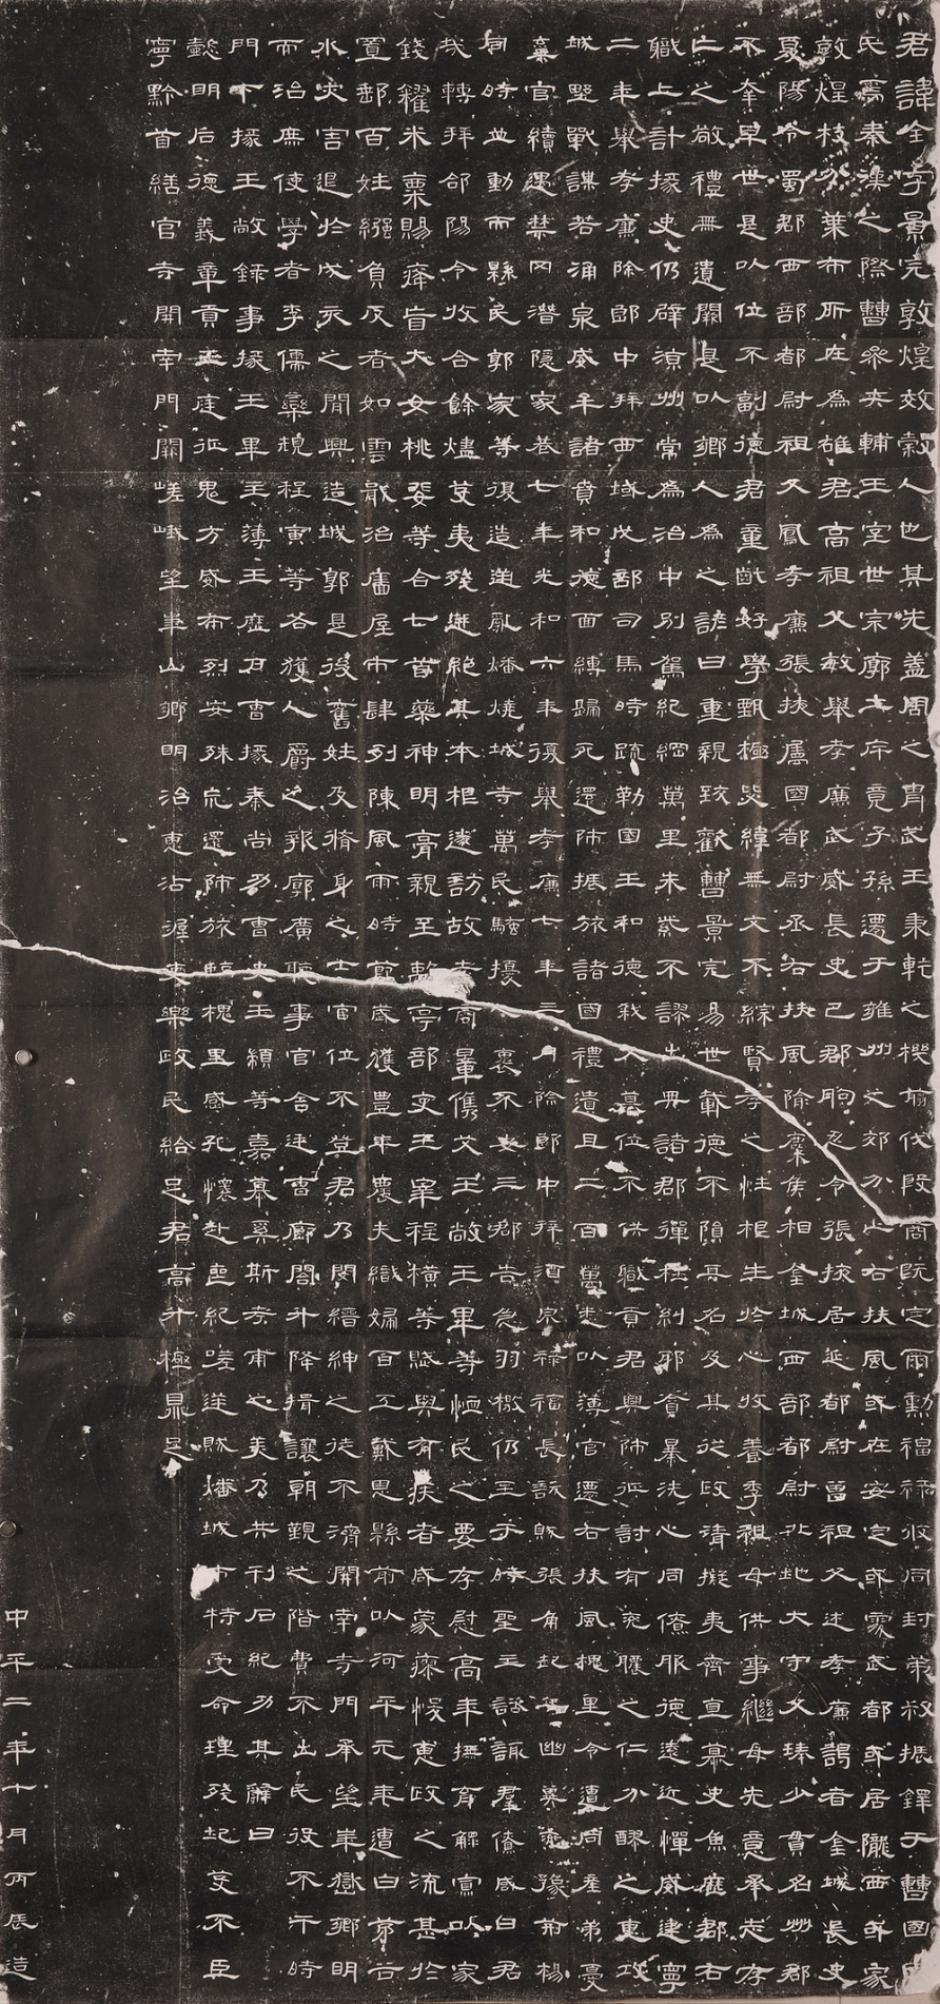 君諱全字景完敦煌效穀人也其先蓋周之胄武王秉乾之機翦伐殷商既定爾勳福祿攸同封弟叔振鐸于曹國因
氏焉秦漢之際曹參夾輔王室世宗廓土斥竟子孫遷于雍州之郊分止右扶風或在安定或處武都或居隴西或家
敦煌枝分葉布所在為雄君高祖父敏舉孝廉武威長史巴郡朐忍令張掖居延都尉曾祖父述孝廉謁者金城長史
夏陽令蜀郡西部都尉祖父鳳孝廉張掖屬國都尉丞右扶風隃麋侯相金城西部都尉北地大守父琫少貫名州郡
不幸早世是以位不副德君童齔好學甄極毖緯無文不綜賢孝之性根生於心收養季祖母供事繼母先意承志存
亡之敬禮無遺闕是以鄉人為之諺曰重親致歡曹景完易世載德不隕其名及其從政清擬夷齊直慕史魚歷郡右
職上計掾史仍辟涼州常為治中別駕紀綱萬里朱紫不謬出典諸郡彈枉糾邪貪暴洗心同僚服德遠近憚威建寧
二年舉孝廉除郎中拜西域戊部司馬時疏勒國王和德弒父篡位不供職貢君興師征討有兗膿之仁分醪之惠攻
城野戰謀若涌泉威牟諸賁和德面縛歸死還師振旅諸國禮遺且二百萬悉以薄官遷右扶風槐里令遭同產弟憂
棄官續遇禁冈潛隱家巷七年光和六年復舉孝廉七年三月除郎中拜酒泉祿福長訞賊張角起兵幽冀兗豫荊楊
同時並動而縣民郭家等復造逆亂燔燒城寺萬民騷擾人裹不安三郡告急羽檄仍至于時聖主諮諏群僚咸曰君
哉轉拜郃陽令收合餘燼芟夷殘迸絕其本根遂訪故老商量儁艾王敞王畢等恤民之要存慰高年撫育鰥寡以家
錢糴米粟賜癃盲大女桃婓等合七首藥神明膏親至離亭部吏王宰程橫等賦與有疾者咸蒙瘳悛惠政之流甚於
置郵百姓繦負反者如雲戢治廧屋市肆列陳風雨時節歲獲豐年農夫織婦百工戴恩縣前以河平元年遭白茅谷
水災害退於戊亥之間興造城郭是後舊姓及脩身之士官位不登君乃閔縉紳之徒不濟開南寺門承望華嶽鄉明
而治庶使學者李儒欒規程寅等各獲人爵之報廓廣聽事官舍廷曹廊閣升降揖讓朝覲之階費不出民役不干時
門下掾王敞錄事掾王畢主薄王歷戶曹掾秦尚功曹史王顓等嘉慕奚斯考甫之美乃共刊石紀功其辭曰
懿明后德義章貢王庭征鬼方威布烈安殊巟還師旅臨槐里感孔懷赴喪紀嗟逆賊燔城市特受命理殘圮芟不臣
寧黔首繕官寺開南門闕嵯峨望華山鄉明治惠沾渥吏樂政民給足君高升極鼎足
中平二年十月丙辰造